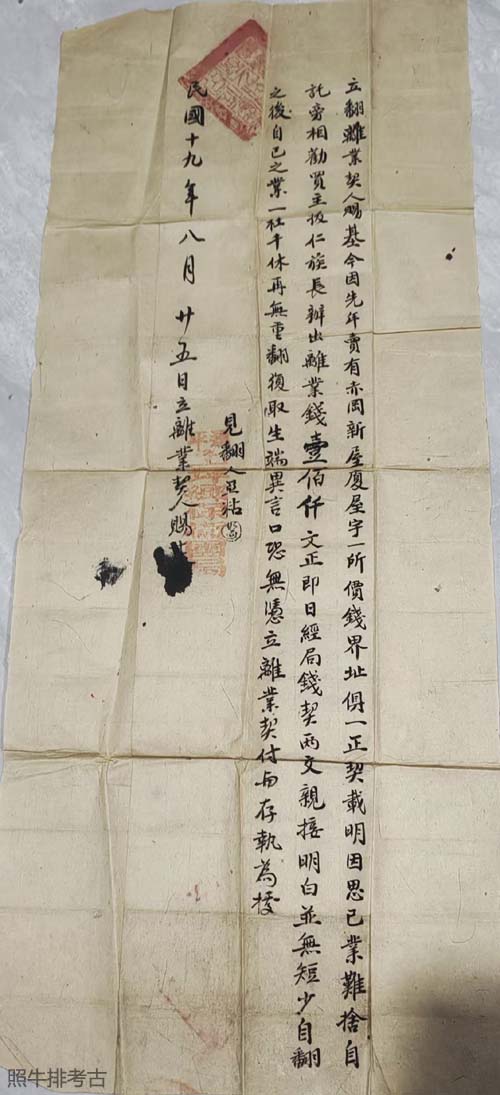 立翻離業契人賜基今因先年賣有赤岡新屋厦屋宇一所價錢界址俱一正契載明因思已業難捨自
託旁相勸買主拔仁族長辦出離業錢壹佰仟文正即日經局錢契兩交親接明白並無短少自翻
之後自己之業一杜千休再無重翻復取生端異言口恐無憑立離業契付与存執為據
見翻人
民國十九年八月廿五日立離業契人賜
照牛排考古